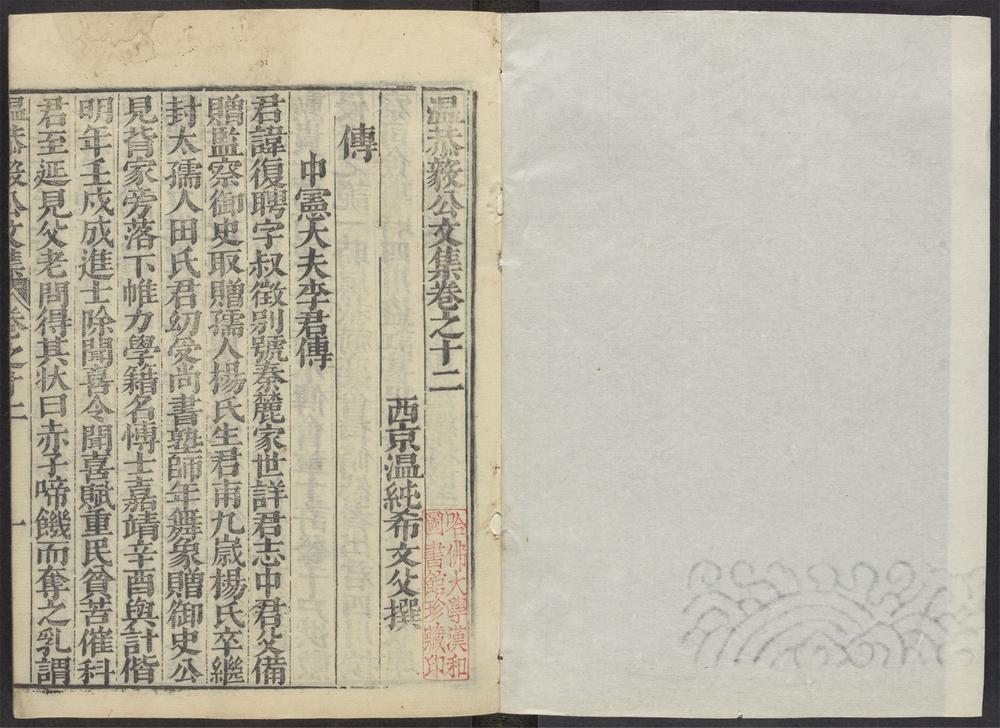 温恭毅公文集卷之十二
西京温純希文父撰
哈佛大學漢和
圖書館珍藏印
傳
中憲大夫李君傳
君諱復聘字叔徴别號秦麓家世詳君志中君父備
贈監察御史取贈孺人楊氏生君甫九歳楊氏卒繼
封太孺人田氏君幼受尚書塾師年舞象贈御史公
見背家旁落下帷力學籍名博士嘉靖辛酉與計偕
明年壬戍成進士除聞喜令聞喜賦重民貧苦催科
君至延見父老問得其状曰赤子啼饑而奪之乳謂
温恭毅公文集 卷之十二 一